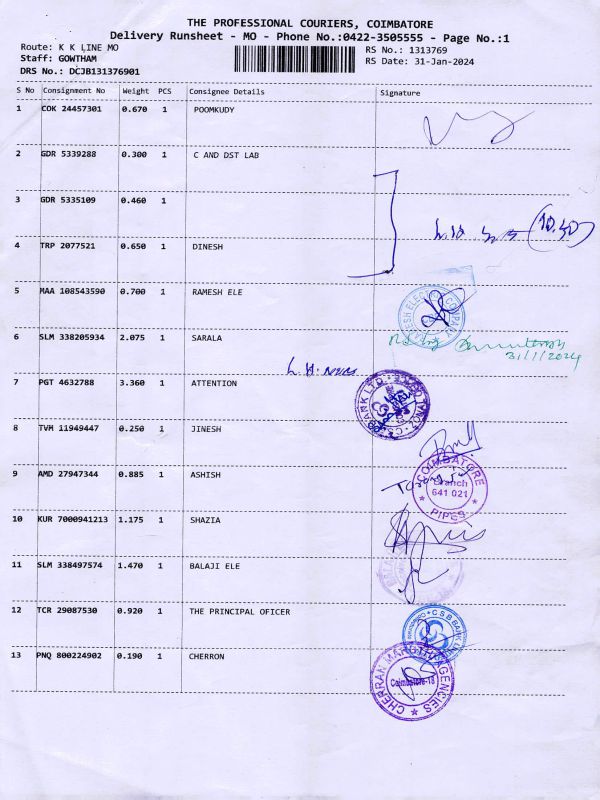 THE PROFESSIONAL COURIERS, COIMBATORE
Delivery Runsheet - MO - Phone No.:0422-3505555 - Page No.:1
Route: K K LINE MO
RS No.: 1313769
Staff: GOWTHAM
RS Date: 31-Jan-2024
DRS No.: DCJB131376901
S No Consignment No Weight PCS Consignee Details Signature
1 COK 24457301 0.670 1 POOMKUDY
2 GDR 5339288 0.300 1 C AND DST LAB
3 GDR 5335109 0.460 1
(10.50)
4 TRP 2077521 0.650 1 DINESH
5 MAA 108543590 0.700 1 RAMESH ELE
6 SLM 338205934 2.075 1 SARALA
31/1/2024
7 PGT 4632788 3.360 1 ATTENTION
8 TVM 11949447 0.250 1 JINESH
COIMBATORE
9 AMD 27947344 0.885 1 ASHISH
Branch
641 021
PIPES
10 KUR 7000941213 1.175 1 SHAZIA
11 SLM 338497574 1.470 1 BALAJI ELE
12 TCR 29087530 0.920 1 THE PRINCIPAL OFICER
13 PNQ 800224902 0.190 1 CHERRON
Coimbatore-18